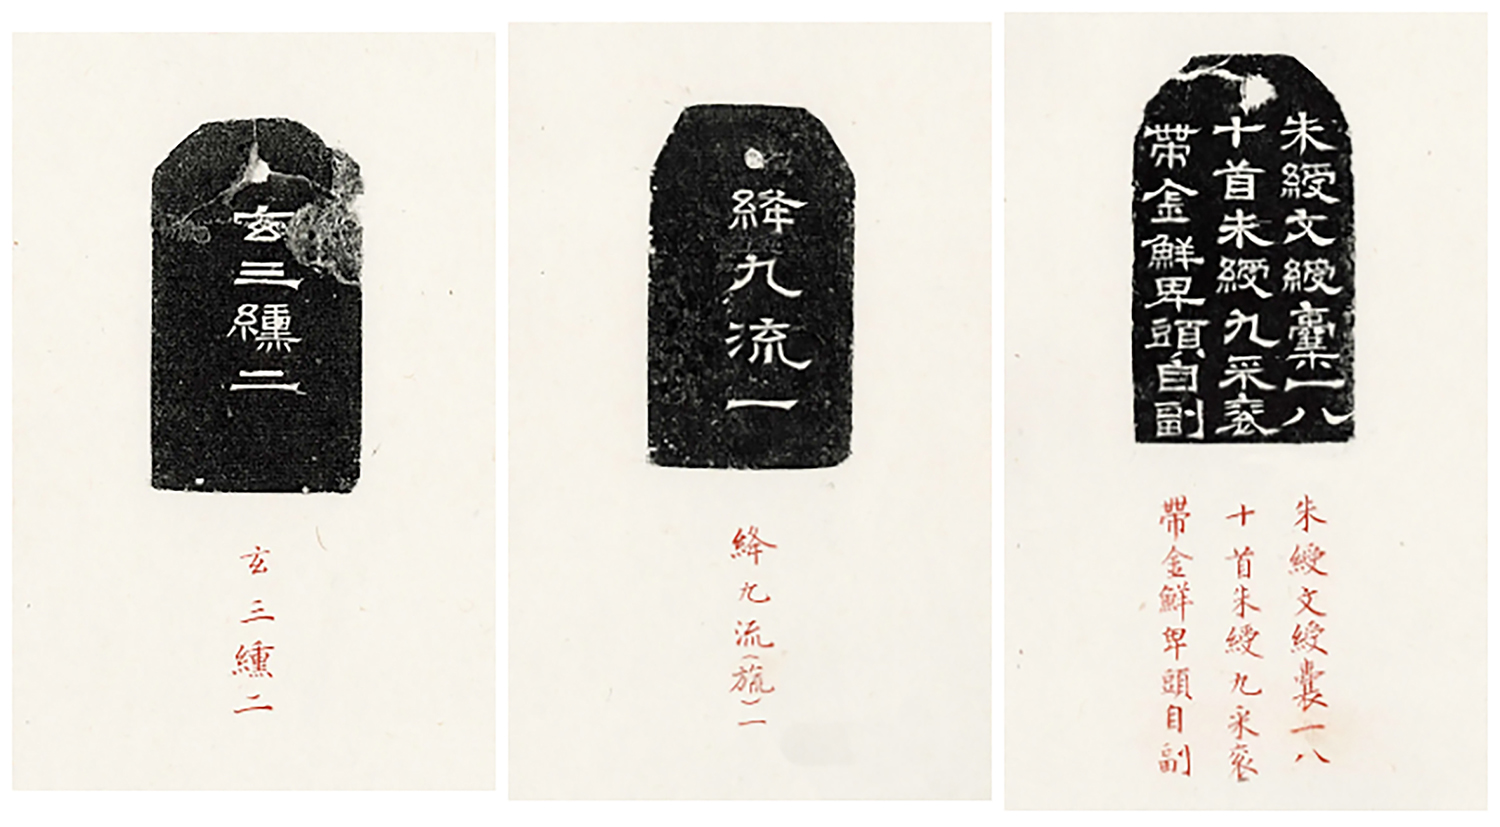 玄三纁二
玄三纁二
絳九流一
絳九流(旒)一
朱綬文綬囊一八
十首朱綬九采衮
帶金鮮卑頭自副
朱綬文綬囊一八
十首朱綬九采衮
帶金鮮卑頭自副